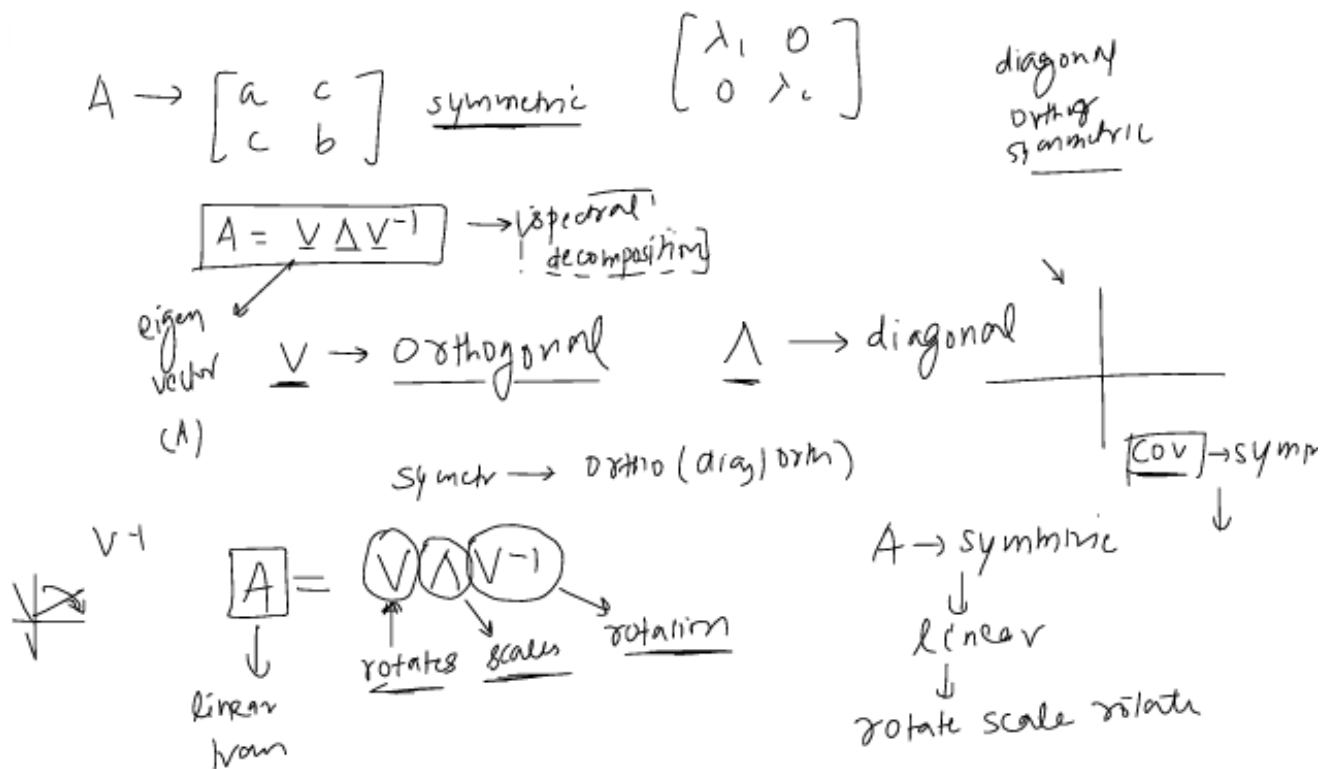 A → [ a c
c b ] symmetric
[ λ₁ 0
0 λ₂ ]
diagonal
orthog
symmetric
A = V Λ V⁻¹ → spectral
decomposition
eigen
vector
(A)
V → Orthogonal
Λ → diagonal
symetr → ortho (diag) orth)
COV → symm
V⁻¹
A = V Λ V⁻¹
rotates scales rotation
linear
tran
A → symmtric
linear
rotate scale rotate